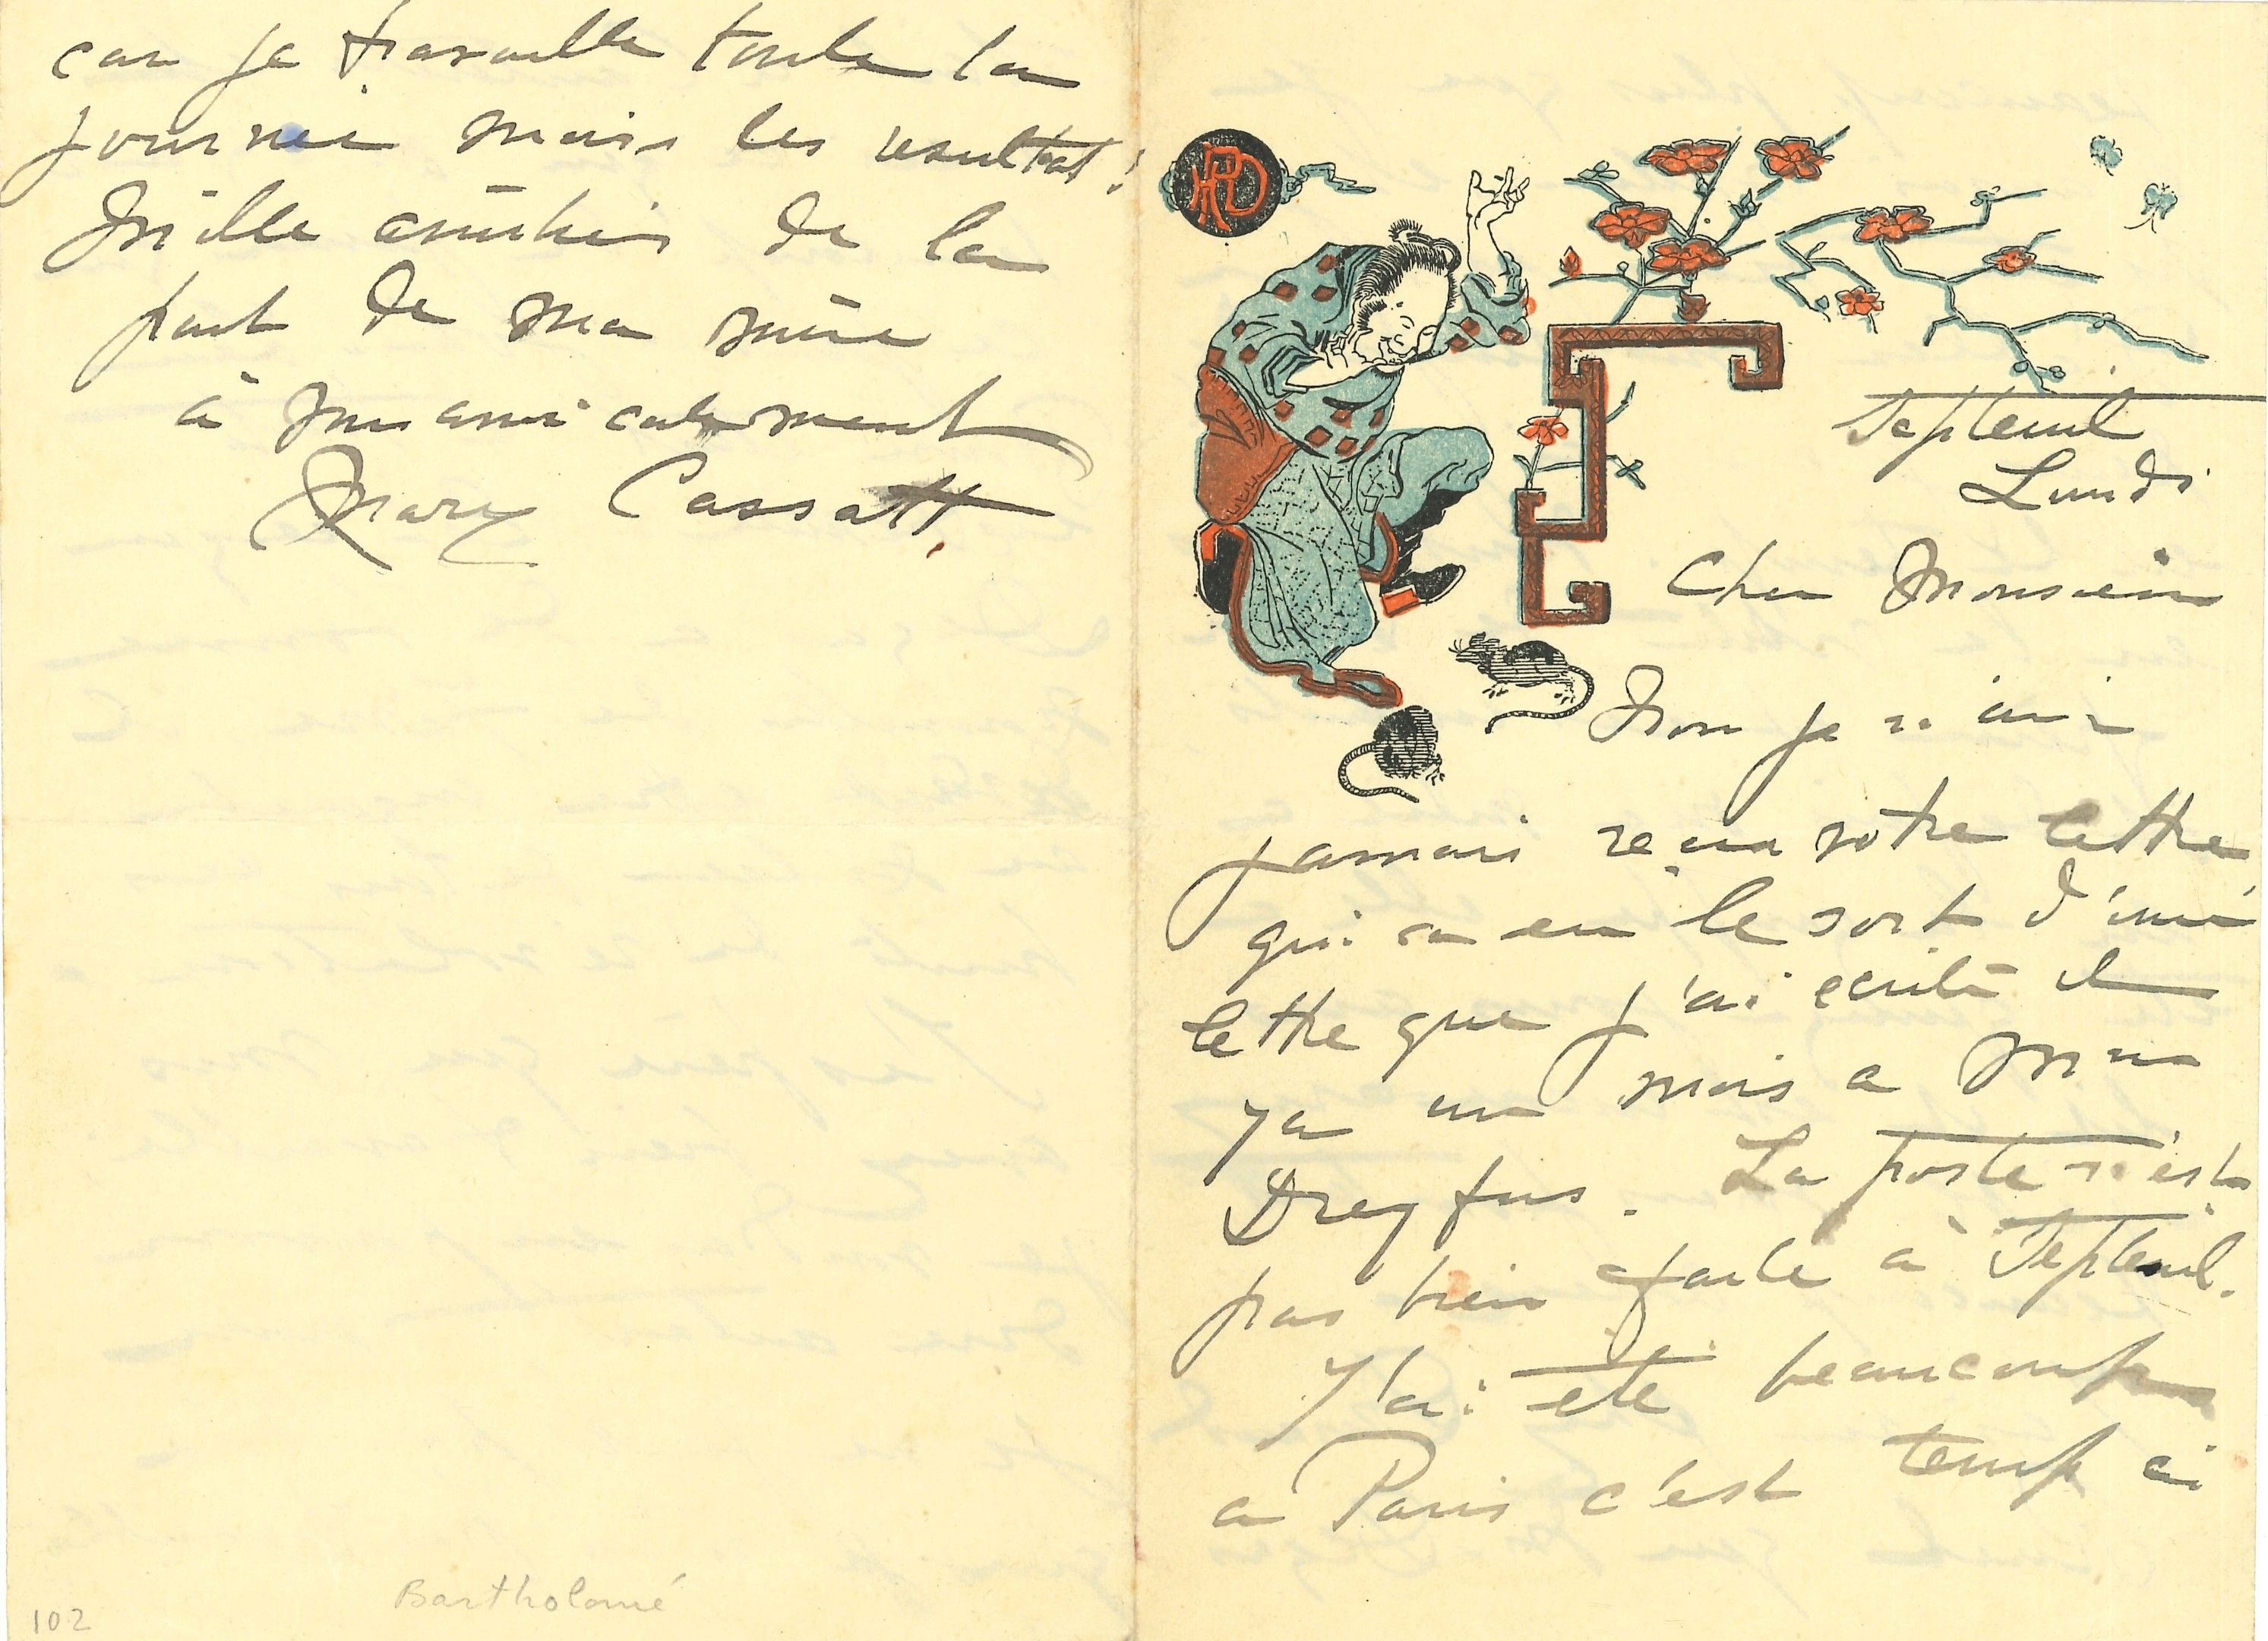 car je travaille toute la
journée mais les resultat!
Mille amitiés de la
part de ma mère
à vous amicalement
Mary Cassatt
Bartholomé
102
Septeuil
Lundi
Cher Monsieur
Non je n'ai
jamais reçu votre lettre
qui a eu le sort d'une
lettre que j'ai ecrité il
y a un mois a Mme
Dreyfus. La poste n'est
pas bien faite à Septeuil.
J'ai eté beaucoup
a Paris c'est temp ci